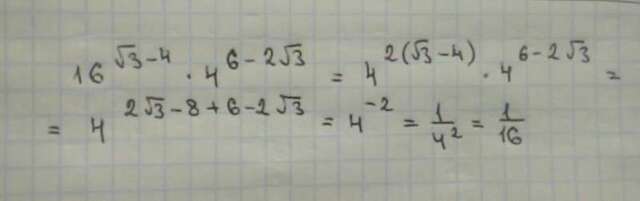 16^{√3-4} · 4^{6-2√3} = 4^{2(√3-4)} · 4^{6-2√3} =
= 4^{2√3-8+6-2√3} = 4^{-2} = \frac{1}{4^2} = \frac{1}{16}